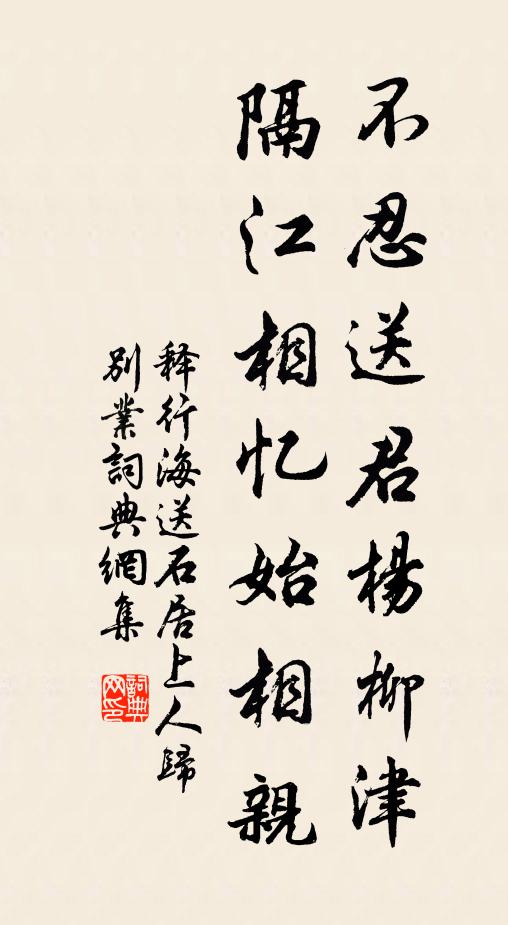 不忍送君楊柳津
隔江相忆始相親
释行海送石居上人歸
別業詞典網集
詞典网印